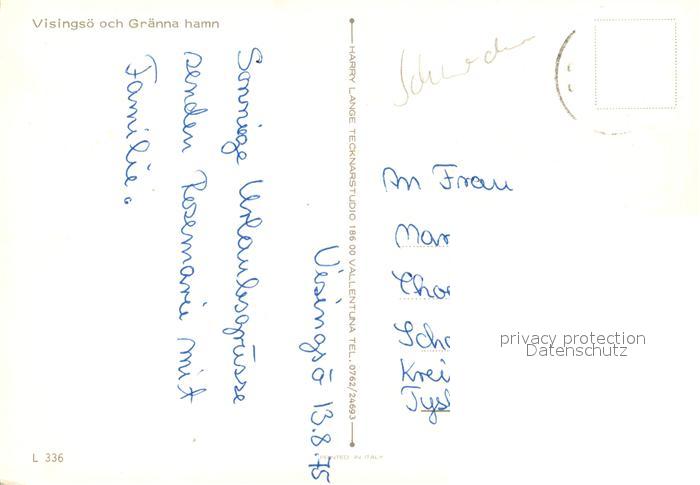 Visingsö och Gränna hamn
Visingsö 13.8.75
Sonnige Urlaubsgrüsse
senden Rosemarie mit
Familie.
HARRY LANGE TECKNARSTUDIO 186 00 VALLENTUNA TEL. 0762/24693
Schweden
An Frau
Mar
Char
Schr
Krei
Tysk
privacy protection
Datenschutz
L 336
PRINTED IN ITALY